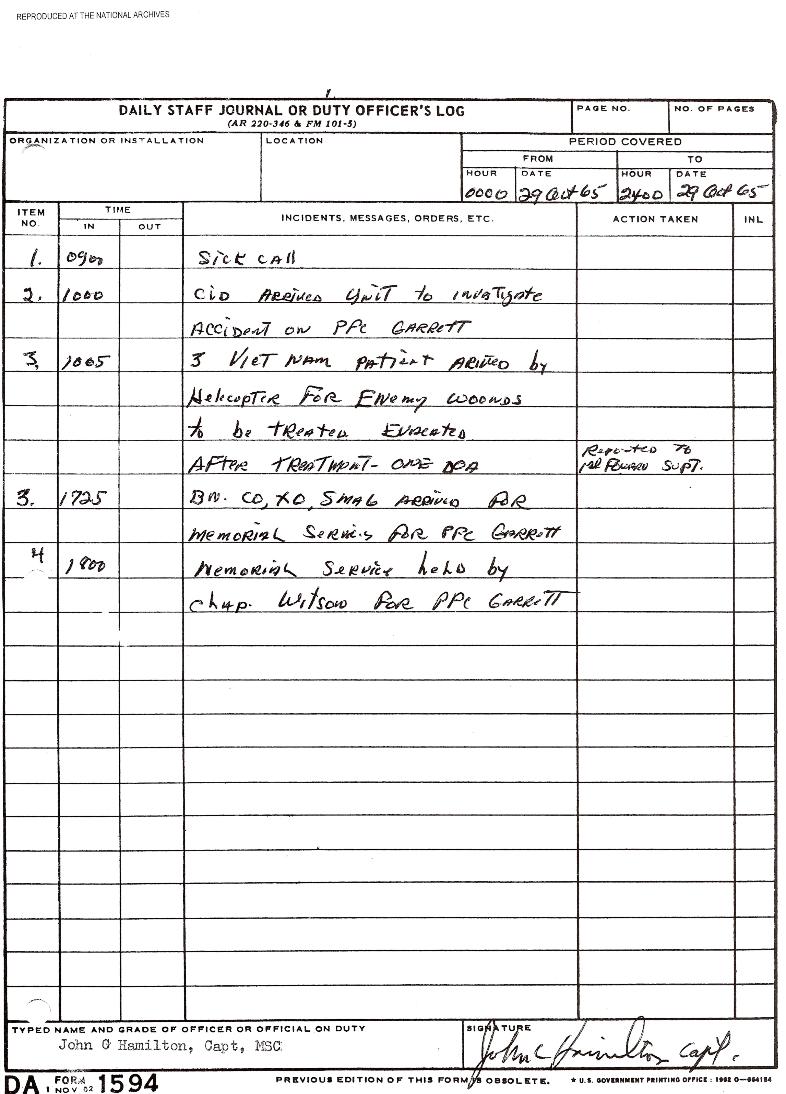 REPRODUCED AT THE NATIONAL ARCHIVES
DAILY STAFF JOURNAL OR DUTY OFFICER'S LOG
(AR 220-346 & FM 101-5)
PAGE NO.
NO. OF PAGES
ORGANIZATION OR INSTALLATION
LOCATION
PERIOD COVERED
FROM
TO
HOUR DATE HOUR DATE
0000 29 Oct 65 2400 29 Oct 65
ITEM NO.
TIME
IN OUT
INCIDENTS, MESSAGES, ORDERS, ETC.
ACTION TAKEN
INL
1. 0900 Sick CAll
2. 1000 CID ARRIVED UNIT to INVATIgATE
ACCIDENT ON PFC GARRETT
3. 1005 3 VIET NAM PATIENT ARIVED by
HELICOPTER FOR ENEMY WOONDS
to be TREATED EVACATED
AFTER TREATMENT- ONE DOA Reported To
SUPT.
3. 1725 BN. CO, XO, SMAG ARRIVED FOR
MEMORIAL SERVICES FOR PFC GARRETT
4 1800 MEMORIAL SERVICE held by
CHAP. WITSOW FOR PFC GARRETT
TYPED NAME AND GRADE OF OFFICER OR OFFICIAL ON DUTY
John G Hamilton, Capt, MSC
SIGNATURE
John C Hamilton Capt.
DA FORM 1 NOV 62 1594
PREVIOUS EDITION OF THIS FORM IS OBSOLETE.
★ U.S. GOVERNMENT PRINTING OFFICE : 1962 O—664184